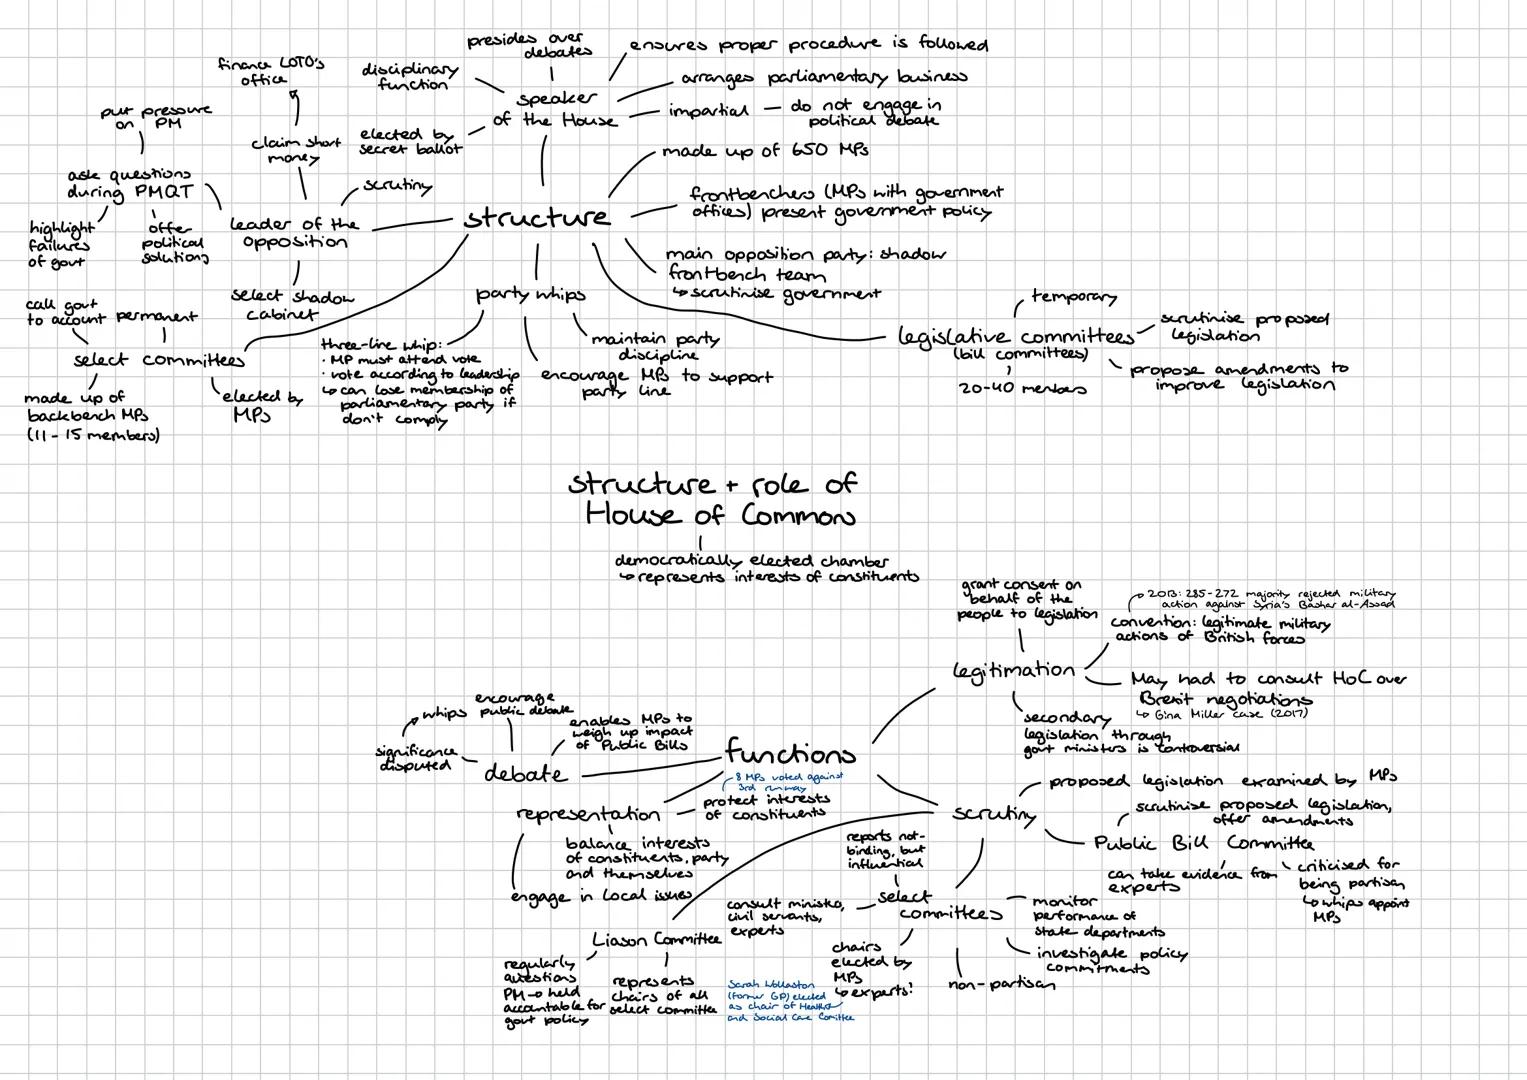 presides over
debates
ensures proper procedure is followed
finance LOTO's
office
disciplinary
function
arranges parliamentary business
speaker
of the House
impartial — do not engage in
political debate
put pressure
on PM
claim short
money
elected by
secret ballot
made up of 650 MPs
ask questions
during PMQT
scrutiny
frontbenchers (MPs with government
offices) present government policy
structure
highlight
failures
of govt
offer
political
solutions
leader of the
opposition
main opposition party: shadow
frontbench team
↳ scrutinise government
select shadow
cabinet
party whips
temporary
call govt
to account
permanent
scrutinise proposed
legislation
legislative committees
(bill committees)
select committees
three-line whip:
· MP must attend vote
· vote according to leadership
↳ can lose membership of
parliamentary party if
don't comply
maintain party
discipline
encourage MPs to support
party line
propose amendments to
improve legislation
20-40 members
made up of
backbench MPs
(11-15 members)
elected by
MPs
structure + role of
House of Commons
democratically elected chamber
↳ represents interests of constituents
grant consent on
behalf of the
people to legislation
2013: 285-272 majority rejected military
action against Syria's Bashar al-Assad
convention: legitimate military
actions of British forces
legitimation
May had to consult HoC over
Brexit negotiations
↳ Gina Miller case (2017)
secondary
legislation through
govt ministers is controversial
encourage
public debate
whips
significance
disputed
enables MPs to
weigh up impact
of Public Bills
debate
functions
8 MPs voted against
3rd runway
protect interests
of constituents
representation
balance interests
of constituents, party
and themselves
engage in local issues
scrutiny
proposed legislation examined by MPs
scrutinise proposed legislation,
offer amendments
Public Bill Committee
can take evidence from
experts
criticised for
being partisan
↳ whips appoint
MPs
reports not-
binding, but
influential
select
committees
consult ministers,
civil servants,
experts
monitor
performance of
state departments
investigate policy
commitments
non-partisan
chairs
elected by
MPs
↳ experts!
Liason Committee
regularly
questions
PM → held
accountable for
govt policy
represents
chairs of all
select committee
Sarah Wollaston
(former GP) elected
as chair of Health
and Social Care Comittee